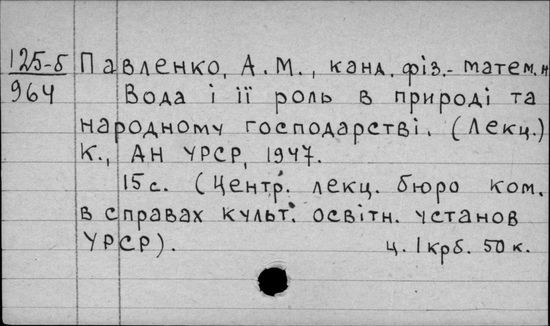 125-б Павленко, А.М., канд. фіз.-матем.н
964 Вода і її роль в природі та
народному господарстві. (Лекц.)
К., АН УРСР, 1947.
15 с. (Центр. лекц. бюро ком.
в справах культ. освітн. установ
УРСР). ц. 1 крб. 50 к.